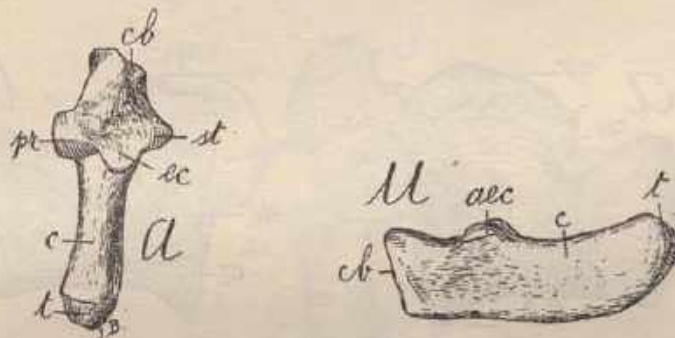 cb
pr
st
ec
c
a
t
B
U
aec
c
t
cb